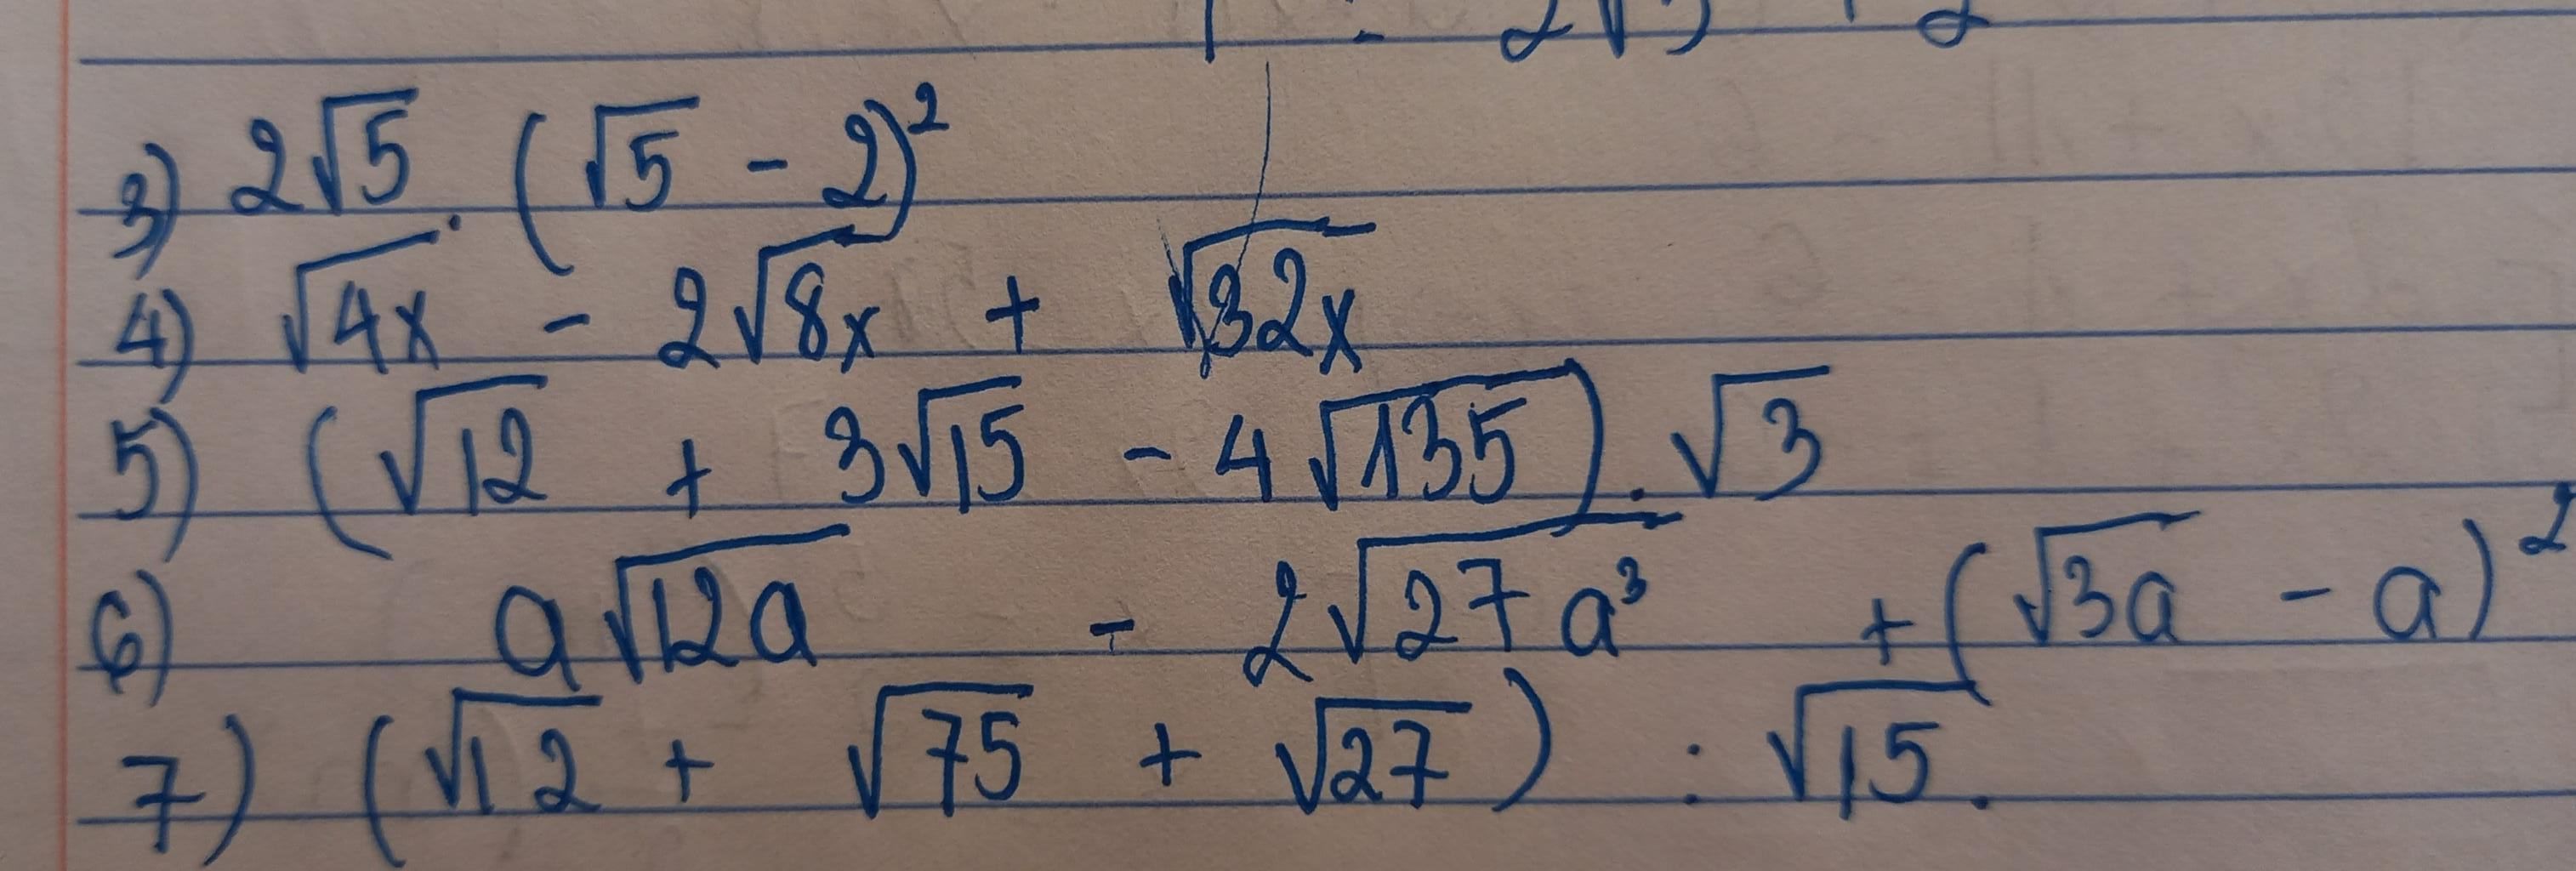 3) 2√5 . (√5 - 2)²
4) √4x - 2√8x + √32x
5) (√12 + 3√15 - 4√135) . √3
6) a√12a - 2√27a³ + (√3a - a)²
7) (√12 + √75 + √27) : √15.